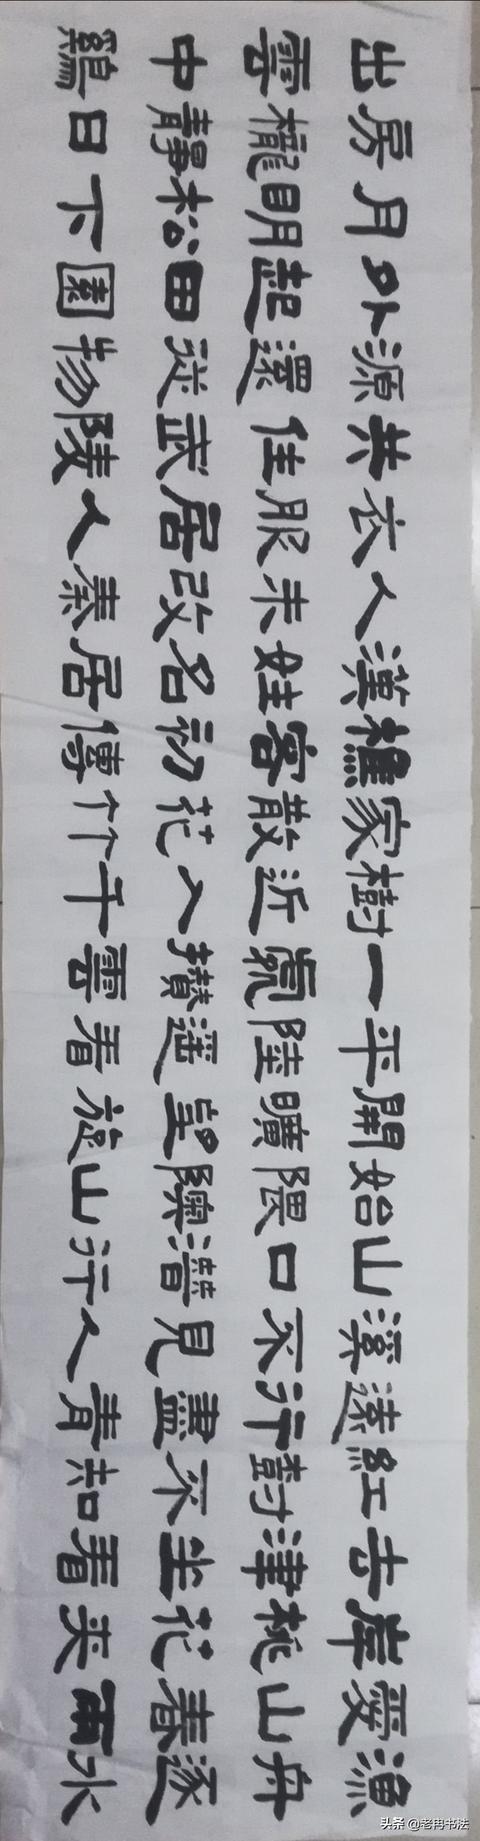 漁舟逐水
愛山春兩
岸桃花夾
去津坐看
紅樹不知
遠行盡青
溪不見人
山口潛行
始隈隩山
開曠望旋
平陸遙看
一處攢雲
樹近入千
家散花竹
樵客初傳
漢姓名居
人未改秦
衣服居人
共住武陵
源還從物
外起田園
月明松下
房櫳靜日
出雲中鷄
头条 @老冉书法